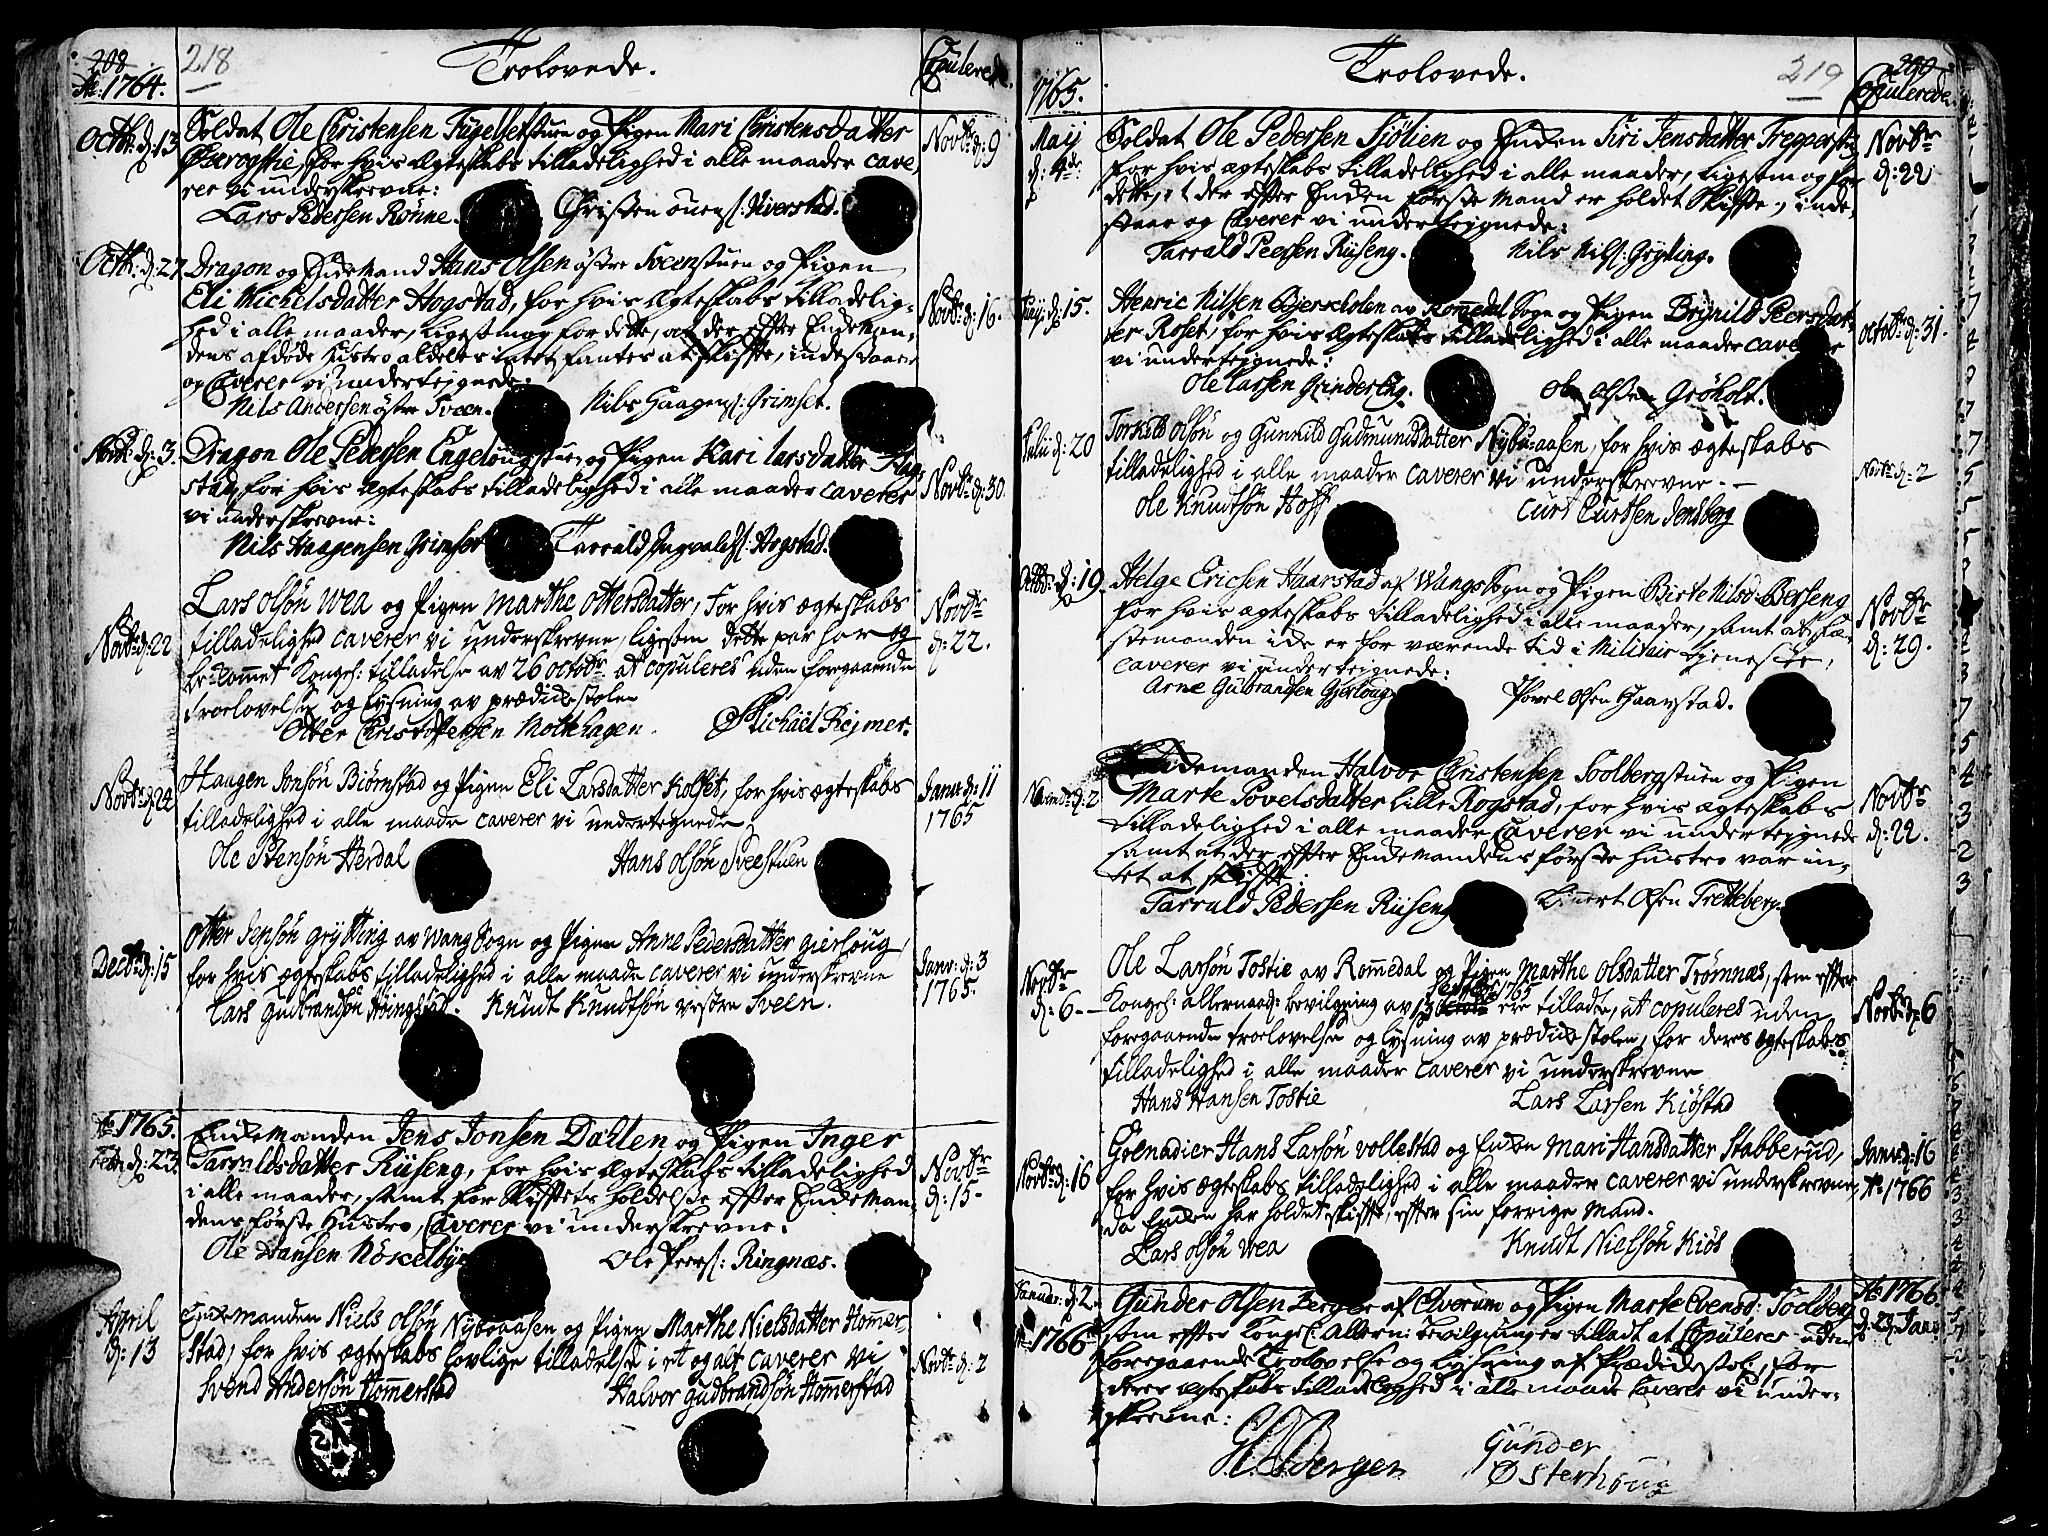 208
218
Ao: 1764.
Trolovede.
Copulerede.
Octbr: d: 13
Soldat Ole Christensen Fugelsetstuen og Pigen Mari Christensdatter
for hvis Ægteskabs tilladelighed i alle maader cave-
rer vi underskrevne:
Lars Pedersen Rønne.
Christen Ouens: Kverstad.
Novbr d: 9
Octbr: d: 27
Dragon og Enkemand Hans Olsen østre Sveenstuen og Pigen
Eli Michelsdatter Hogstad, for hvis Ægteskabs tilladelig-
hed i alle maader, ligesom og for dette, at der efter Enkeman-
dens afdøde Hustro aldeles intet fantes at skifte, indestaae
og Caverer vi undertejgnede:
Nils Andersen østre Sveen.
Nils Haagens: Grimset.
Novbr d: 16.
Novbr: d: 3.
Dragon Ole Pedersen Engelougstuen og Pigen Kari Larsdatter Flag-
stad, for hvis Ægteskabs tilladelighed i alle maader caverer
vi underskrevne:
Nils Haagensen Grimset
Tarrald Ingvalds: Hogstad.
Novbr d: 30.
Novbr d: 22
Lars Olsøn Wea og Pigen Marthe Ottersdatter, for hvis ægteskabs
tilladelighed caverer vi underskrevne, ligesom dette par har og
bekommet Kongel: tilladelse av 26 octobr. at copuleres uden foregaaende
troelovelse og lysning av prædikestolen
Otter Christophersen Mothhagen.
Michäel Rejmer.
Novbr d: 22.
Novbr d: 24
Haagen Jonsøn Biørnstad og Pigen Eli Larsdatter Kolset, for hvis ægteskabs
tilladelighed i alle maade caverer vi undertegnede
Ole Stensøn Herdal
Hans Olsøn Sveestuen
Janv: d: 11
1765
Decbr d: 15
Otter Jensøn Grytting av Wang Sogn og Pigen Anne Pedersdatter Gierloug,
for hvis ægteskabs tilladelighed i alle maade caverer vi underskrevne
Lars Gudbrandsøn Høingstad.
Knudt Knudtsøn vestre Sveen.
Janv: d: 3
1765.
Ao 1765.
Febr: d: 23.
Enkemanden Jens Jonsen Dallen og Pigen Inger
Tarraldsdatter Rüseng, for hvis Ægteskabs tilladelighed
i alle maader, samt for Skiftets holdelse efter Enkeman-
dens første Hustro, Caverer vi underskrevne:
Ole Hansen Køkelbye
Ole Peers: Ringnæs.
Novbr
d: 15.
April
d: 13
Enkemanden Niels Olsøn Nybuaasen og Pigen Marthe Nielsdatter Hommer-
stad, for hvis ægteskabs lovlige tilladelse i ett og alt caverer vi
Svend Andersøn Hommerstad
Halvor Gudbrandsøn Hommerstad
Novbr d: 2
1765.
Trolovede.
219
Copulerede.
Maij
d: 4de
Soldat Ole Pedersen Sjølien og Enken Siri Jensdatter
for hvis ægteskabs tilladelighed i alle maader, ligesom og for
dette, at der efter Enken første Mand er holdet Skifte, inde-
staar og Caverer vi undertejgnede:
Tarrald Peersen Rüseng.
Nils Nils: Grytting.
Novbr
d: 22
d: 15.
Henric Nilsen Bjerkholen av Rommedal Sogn og Pigen Brynild Peersdat-
ter Roset, for hvis Ægteskabs tilladelighed i alle maader caverer
vi undertejgnede:
Ole Larsen Grindereng.
Ole Olsen Grøholt.
Octobr d: 31.
Julii d: 20
Torkild Olsøn og Gunnild Gudmundsdatter Nybu-aasen, for hvis ægteskabs
tilladelighed i alle maader caverer vi underskrevne.
Ole Knudtsøn Hoff
Curt Curtsen Jensberg
Novbr d: 2
Octbr: d: 19.
Helge Ericsen Haarstad af Wangs Sogn og Pigen Birte Nilsd: Berseng
for hvis ægteskabs tilladelighed i alle maader, samt at Fæ-
stemanden icke er for værende tid i Militair tjeneste,
caverer vi undertejgnede:
Arne Gulbrandsen Gjerloug
Povel Olsen Haavstad.
Novbr
d: 29.
d: 2
Enkemanden Halvor Christensen Soolbergstuen og Pigen
Marte Povelsdatter Lille Rogstad, for hvis ægteskabs
tilladelighed i alle maader Caverer vi undertejgnede
samt at der efter Enkemandens første Hustro var in-
tet at skifte:
Tarrald Pedersen Rüseng
Olsen Tretteberg.
Novbr
d: 22.
Novbr
d: 6
Ole Larsøn Tostie av Rommedal og Pigen Marthe Olsdatter Trømnæs, som efter
Kongel: allernaad: bevilgning av 1765 ere tilladte, at copuleres uden
foregaaende troelovelse og lysning av prædikestolen, for deres ægteskabs
tilladelighed i alle maader caverer vi underskrevne
Hans Hansen Tostie
Lars Larsen Kiøstad
Novbr d: 6
Novbr d: 16
Grenadier Hans Larsøn Vollestad og Enken Mari Hansdatter Stabberud,
for hvis ægteskabs tilladelighed i alle maader caverer vi underskrevne,
da Enken har holdet skifte, efter sin forrige Mand.
Lars Olsøn Wea
Knudt Nielssøn Kiøs
Janv: d: 16
Ao 1766
Januar: d: 2.
1766
Gunder Olsen Berger af Elverum og Pigen Marte Evensd: Soelberg
som efter Kongel: Allern: bevilgning er tilladt at Copuleres uden
foregaaende Trolovelse og lysning af Prædikestol, for
deres ægteskabs tilladelighed i alle maade Caverer vi under-
skrevne:
Bergen
Gunder
Østerhoug
Ao 1766.
d: 23 Janv: